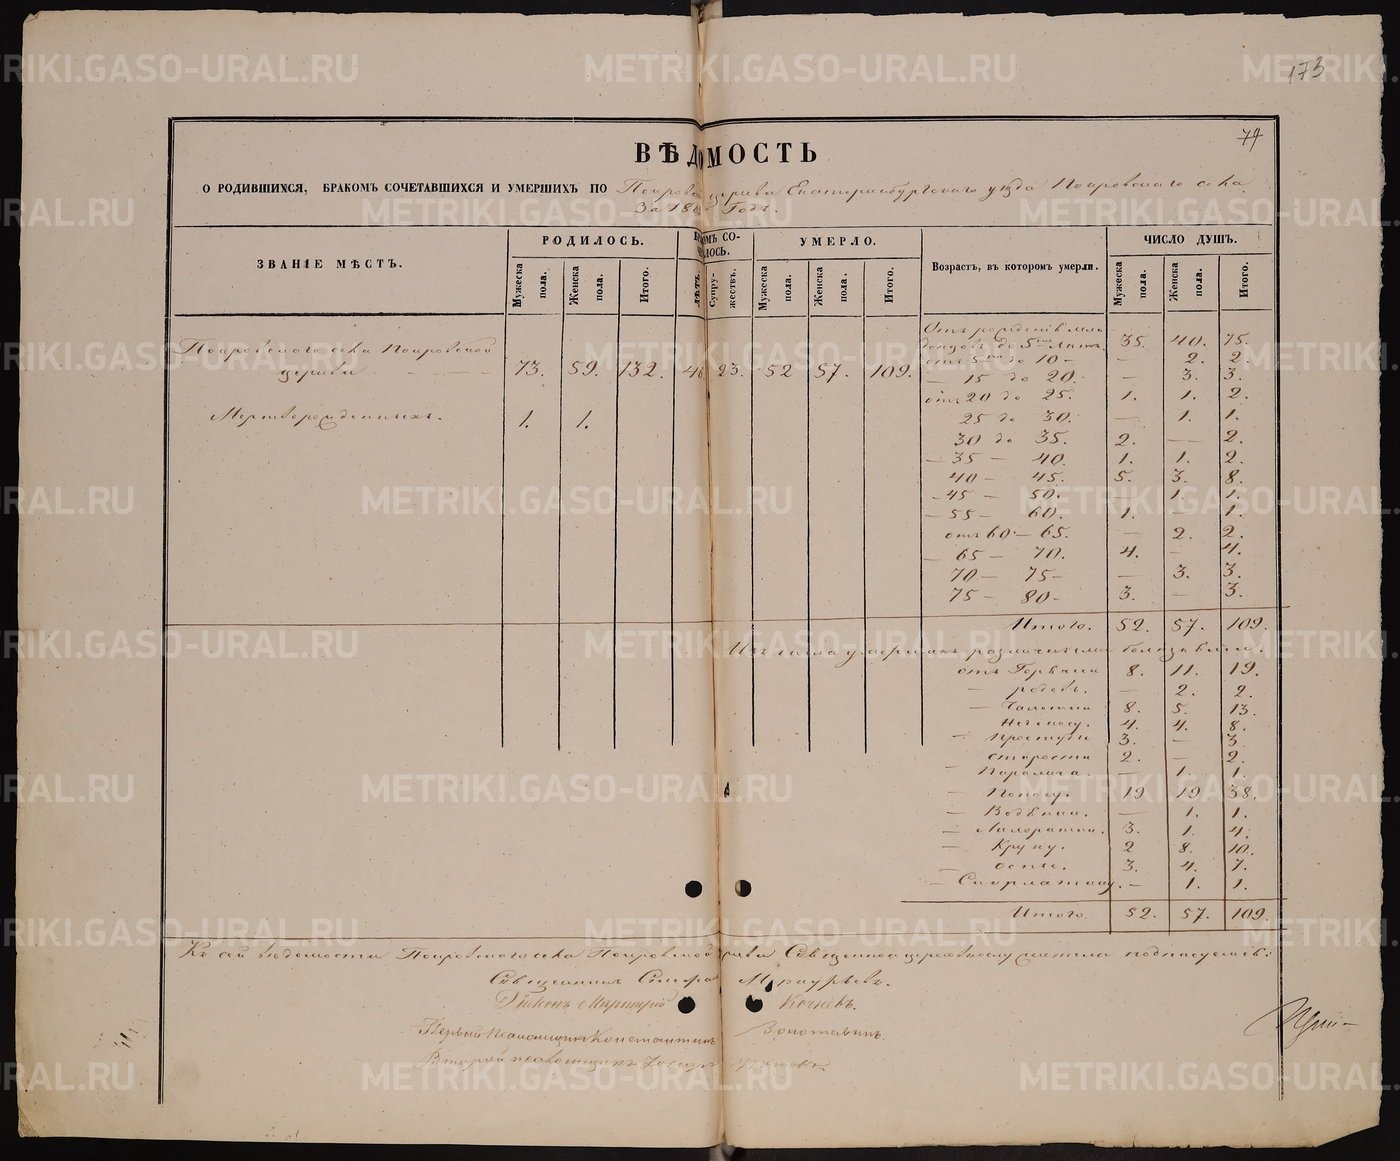 173
79
ВѢДОМОСТЬ
О РОДИВШИХСЯ, БРАКОМЪ СОЧЕТАВШИХСЯ И УМЕРШИХЪ ПО Покров церкви Екатеринбургскаго уѣзда Покровскаго села
За 18 Годъ.
ЗВАНІЕ МѢСТЪ.
РОДИЛОСЬ.
Мужеска пола.
Женска пола.
Итого.
ОМЪ СО-
ЛОСЬ.
ЛѢТЪ.
Супру-жествъ.
УМЕРЛО.
Мужеска пола.
Женска пола.
Итого.
Возрастъ, въ которомъ умерли.
ЧИСЛО ДУШЪ.
Мужеска пола.
Женска пола.
Итого.
Покровскаго села Покровской
церкви 73. 59. 132. 46 23. 52 57. 109.
Мертворожденныхъ. 1. 1.
Отъ рожденія мла
денцовъ до 5 лѣтъ. 35. 40. 75.
отъ 5 до 10 — — 2. 2.
— 15 до 20. — 3. 3.
отъ 20 до 25. 1. 1. 2.
25 до 30. — 1. 1.
30 до 35. 2. — 2.
— 35 — 40. 1. 1. 2.
40 — 45. 5. 3. 8.
— 45 — 50. 1. 1.
— 55 — 60. 1. — 1.
отъ 60 — 65. — 2. 2.
— 65 — 70. 4. — 4.
70 — 75 — — 3. 3.
75 — 80 — 3. — 3.
Итого. 52. 57. 109.
Изъ числа умершихъ различными болѣзнями.
отъ Горячки 8. 11. 19.
— родовъ. — 2. 2.
— Чахотки 8. 5. 13.
4. 4. 8.
— Простуды 3. — 3.
старости 2. — 2.
— Паралича. — 1. 1.
— Поносу. 19 19 38.
— Водянки. — 1. 1.
— Лихорадки. 3. 1. 4.
— Крупу. 2 8. 10.
— оспы. 3. 4. 7.
— Скарлатины. — 1. 1.
Итого. 52. 57. 109.
Къ сей вѣдомости Покровскаго села Покровской церкви Священно церковнослужители подписуемся:
Священникъ Стефан
Діаконъ Кочневъ.
Первый Псаломщикъ Константинъ Золотавинъ.
Второй псаломщикъ
METRIKI.GASO-URAL.RU